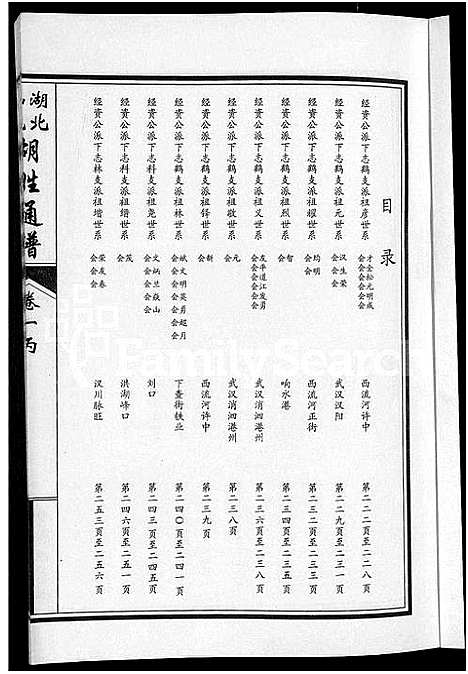 目录
经资公派下志鹤支派祖彦世系 才会 金会 松会 元会 明会 成会 西流河许中 第二二二页至二二八页
经资公派下志鹤支派祖元世系 汉会 生会 荣会 武汉汉阳 第二二九页至二三一页
经资公派下志鹤支派祖耀世系 均会 明会 西流河正街 第二三二页至二三三页
经资公派下志鹤支派祖烈世系 智会 响水港 第二三四页至二三五页
经资公派下志鹤支派祖义世系 友会 平会 道会 江会 发会 勇会 武汉消泗港州 第二三六页至二三八页
经资公派下志鹤支派祖敬世系 凡会 武汉消泗港州 第二三八页
经资公派下志鹤支派祖锋世系 新会 西流河许中 第二三九页
经资公派下志鹤支派祖林世系 斌会 文会 明会 英会 勇会 超会 月会 下查街铁业 第二四〇页至二四一页
经资公派下志科支派祖尧世系 文会 炳会 兰会 焱会 山会 刘口 第二四三页至二四五页
经资公派下志科支派祖缙世系 茂会 洪湖峰口 第二四六页至二五一页
经资公派下志林支派祖增世系 荣会 友会 春会 汉川脉旺 第二五三页至二五六页
湖北
胡姓通普
卷一丙
FamilySearch